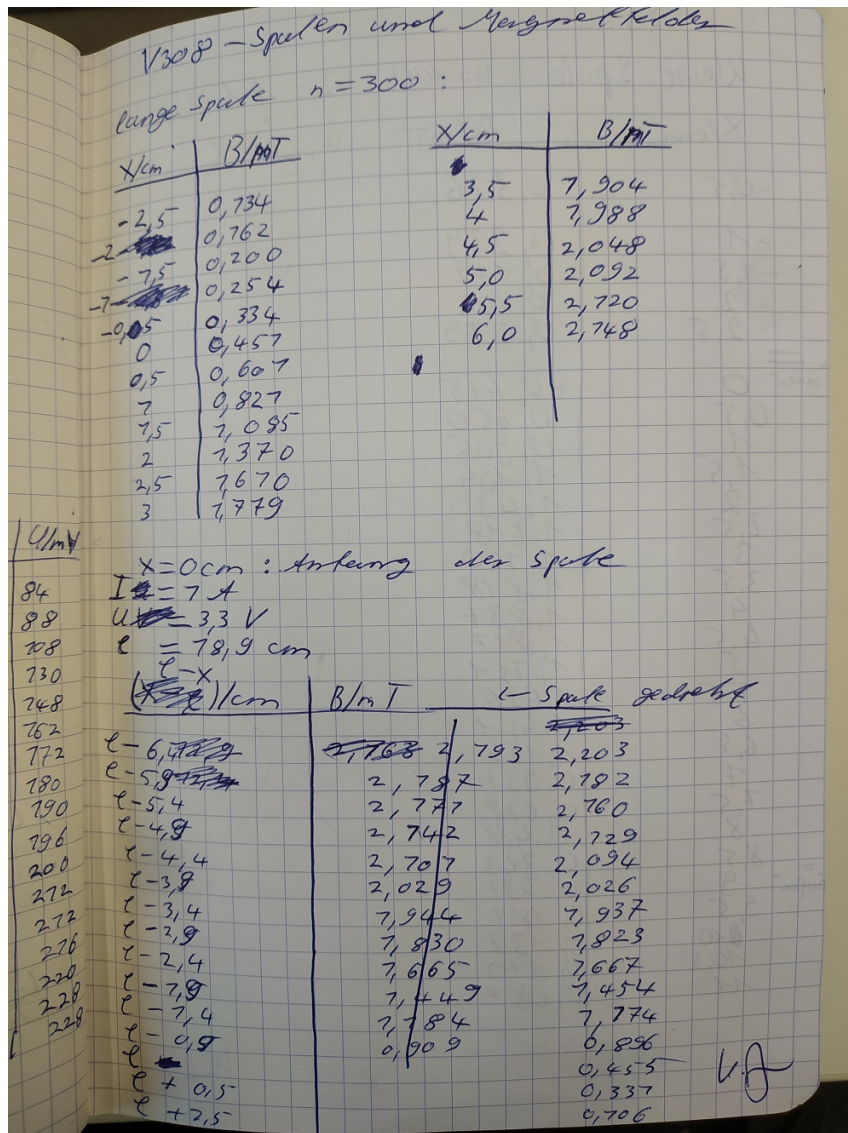 V308 – Spulen und Magnetfelder
lange Spule n = 300 :
x/cm B/mT
-2,5 0,134
-2 0,162
-1,5 0,200
-1 0,254
-0,5 0,334
0 0,451
0,5 0,601
1 0,821
1,5 1,085
2 1,370
2,5 1,610
3 1,779
x/cm B/mT
3,5 1,904
4 1,988
4,5 2,048
5,0 2,092
5,5 2,120
6,0 2,148
x = 0 cm : Anfang der Spule
I = 1 A
U = 3,3 V
ℓ = 18,9 cm
ℓ-x
/cm B/mT ← Spule gedreht
ℓ - 6,4 2,193 2,203
ℓ - 5,9 2,187 2,182
ℓ - 5,4 2,171 2,160
ℓ - 4,9 2,142 2,129
ℓ - 4,4 2,101 2,094
ℓ - 3,9 2,029 2,026
ℓ - 3,4 1,944 1,937
ℓ - 2,9 1,830 1,823
ℓ - 2,4 1,665 1,667
ℓ - 1,9 1,449 1,454
ℓ - 1,4 1,184 1,174
ℓ - 0,9 0,909 0,896
ℓ 0,455
ℓ + 0,5 0,331
ℓ + 2,5 0,106
U/mV
84
88
108
130
148
162
172
180
190
196
200
212
212
216
220
228
228